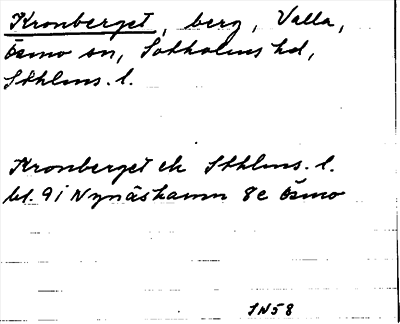 Kronberget, berg, Valla,
Ösmo sn, Sotholms hd,
Sthlms. l.
Kronberget ek Sthlms. l.
bl. 9i Nynäshamn 8e Ösmo
IN58